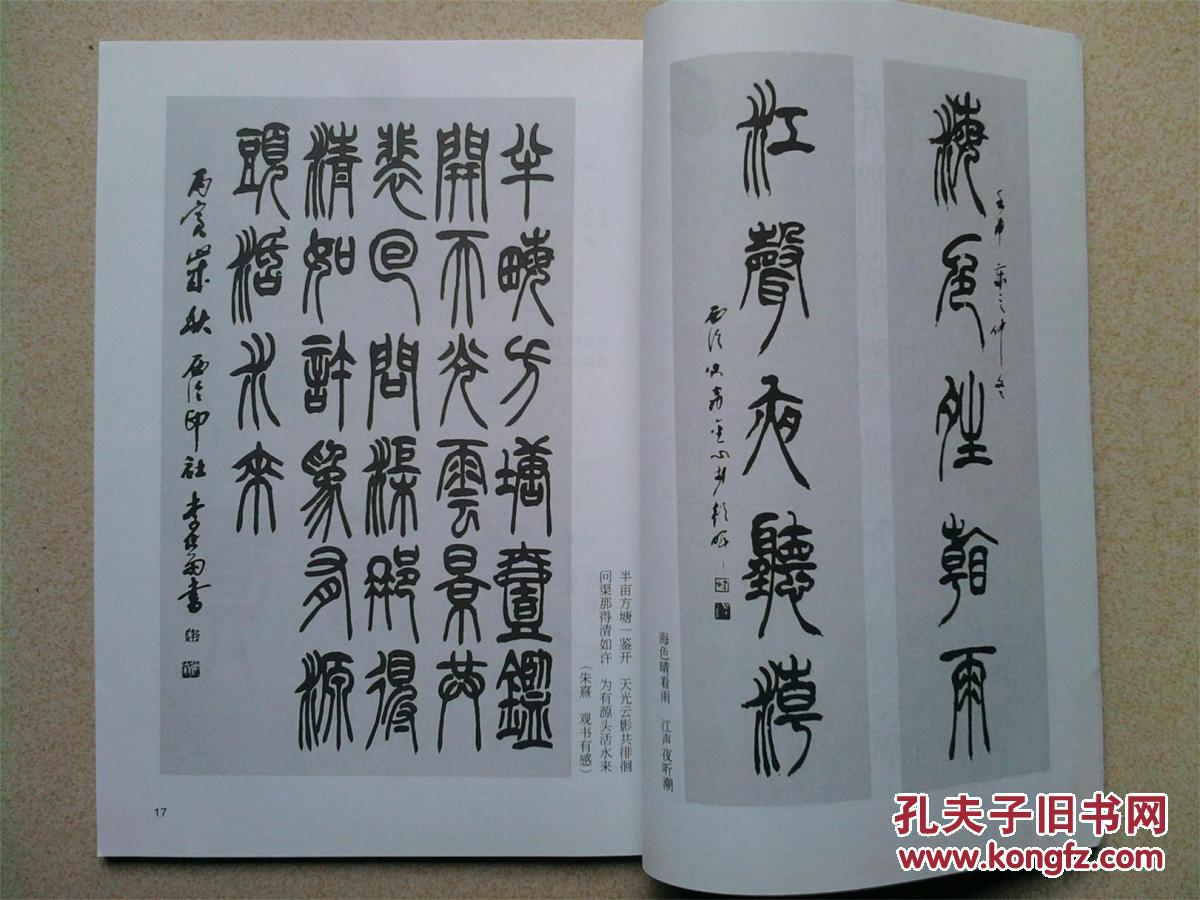 半畮方塘壹鑑
開天光雲景共
裴回問渠那得
清如許為有源
頭活水來
丙寅歲秋 西泠印社 李伏雨書
半亩方塘一鉴开 天光云影共徘徊
问渠那得清如许 为有源头活水来
（朱熹 观书有感）
17
海色晴看雨
壬申歲之仲冬
江聲夜聽潮
海色晴看雨 江声夜听潮
孔夫子旧书网
www.kongfz.com